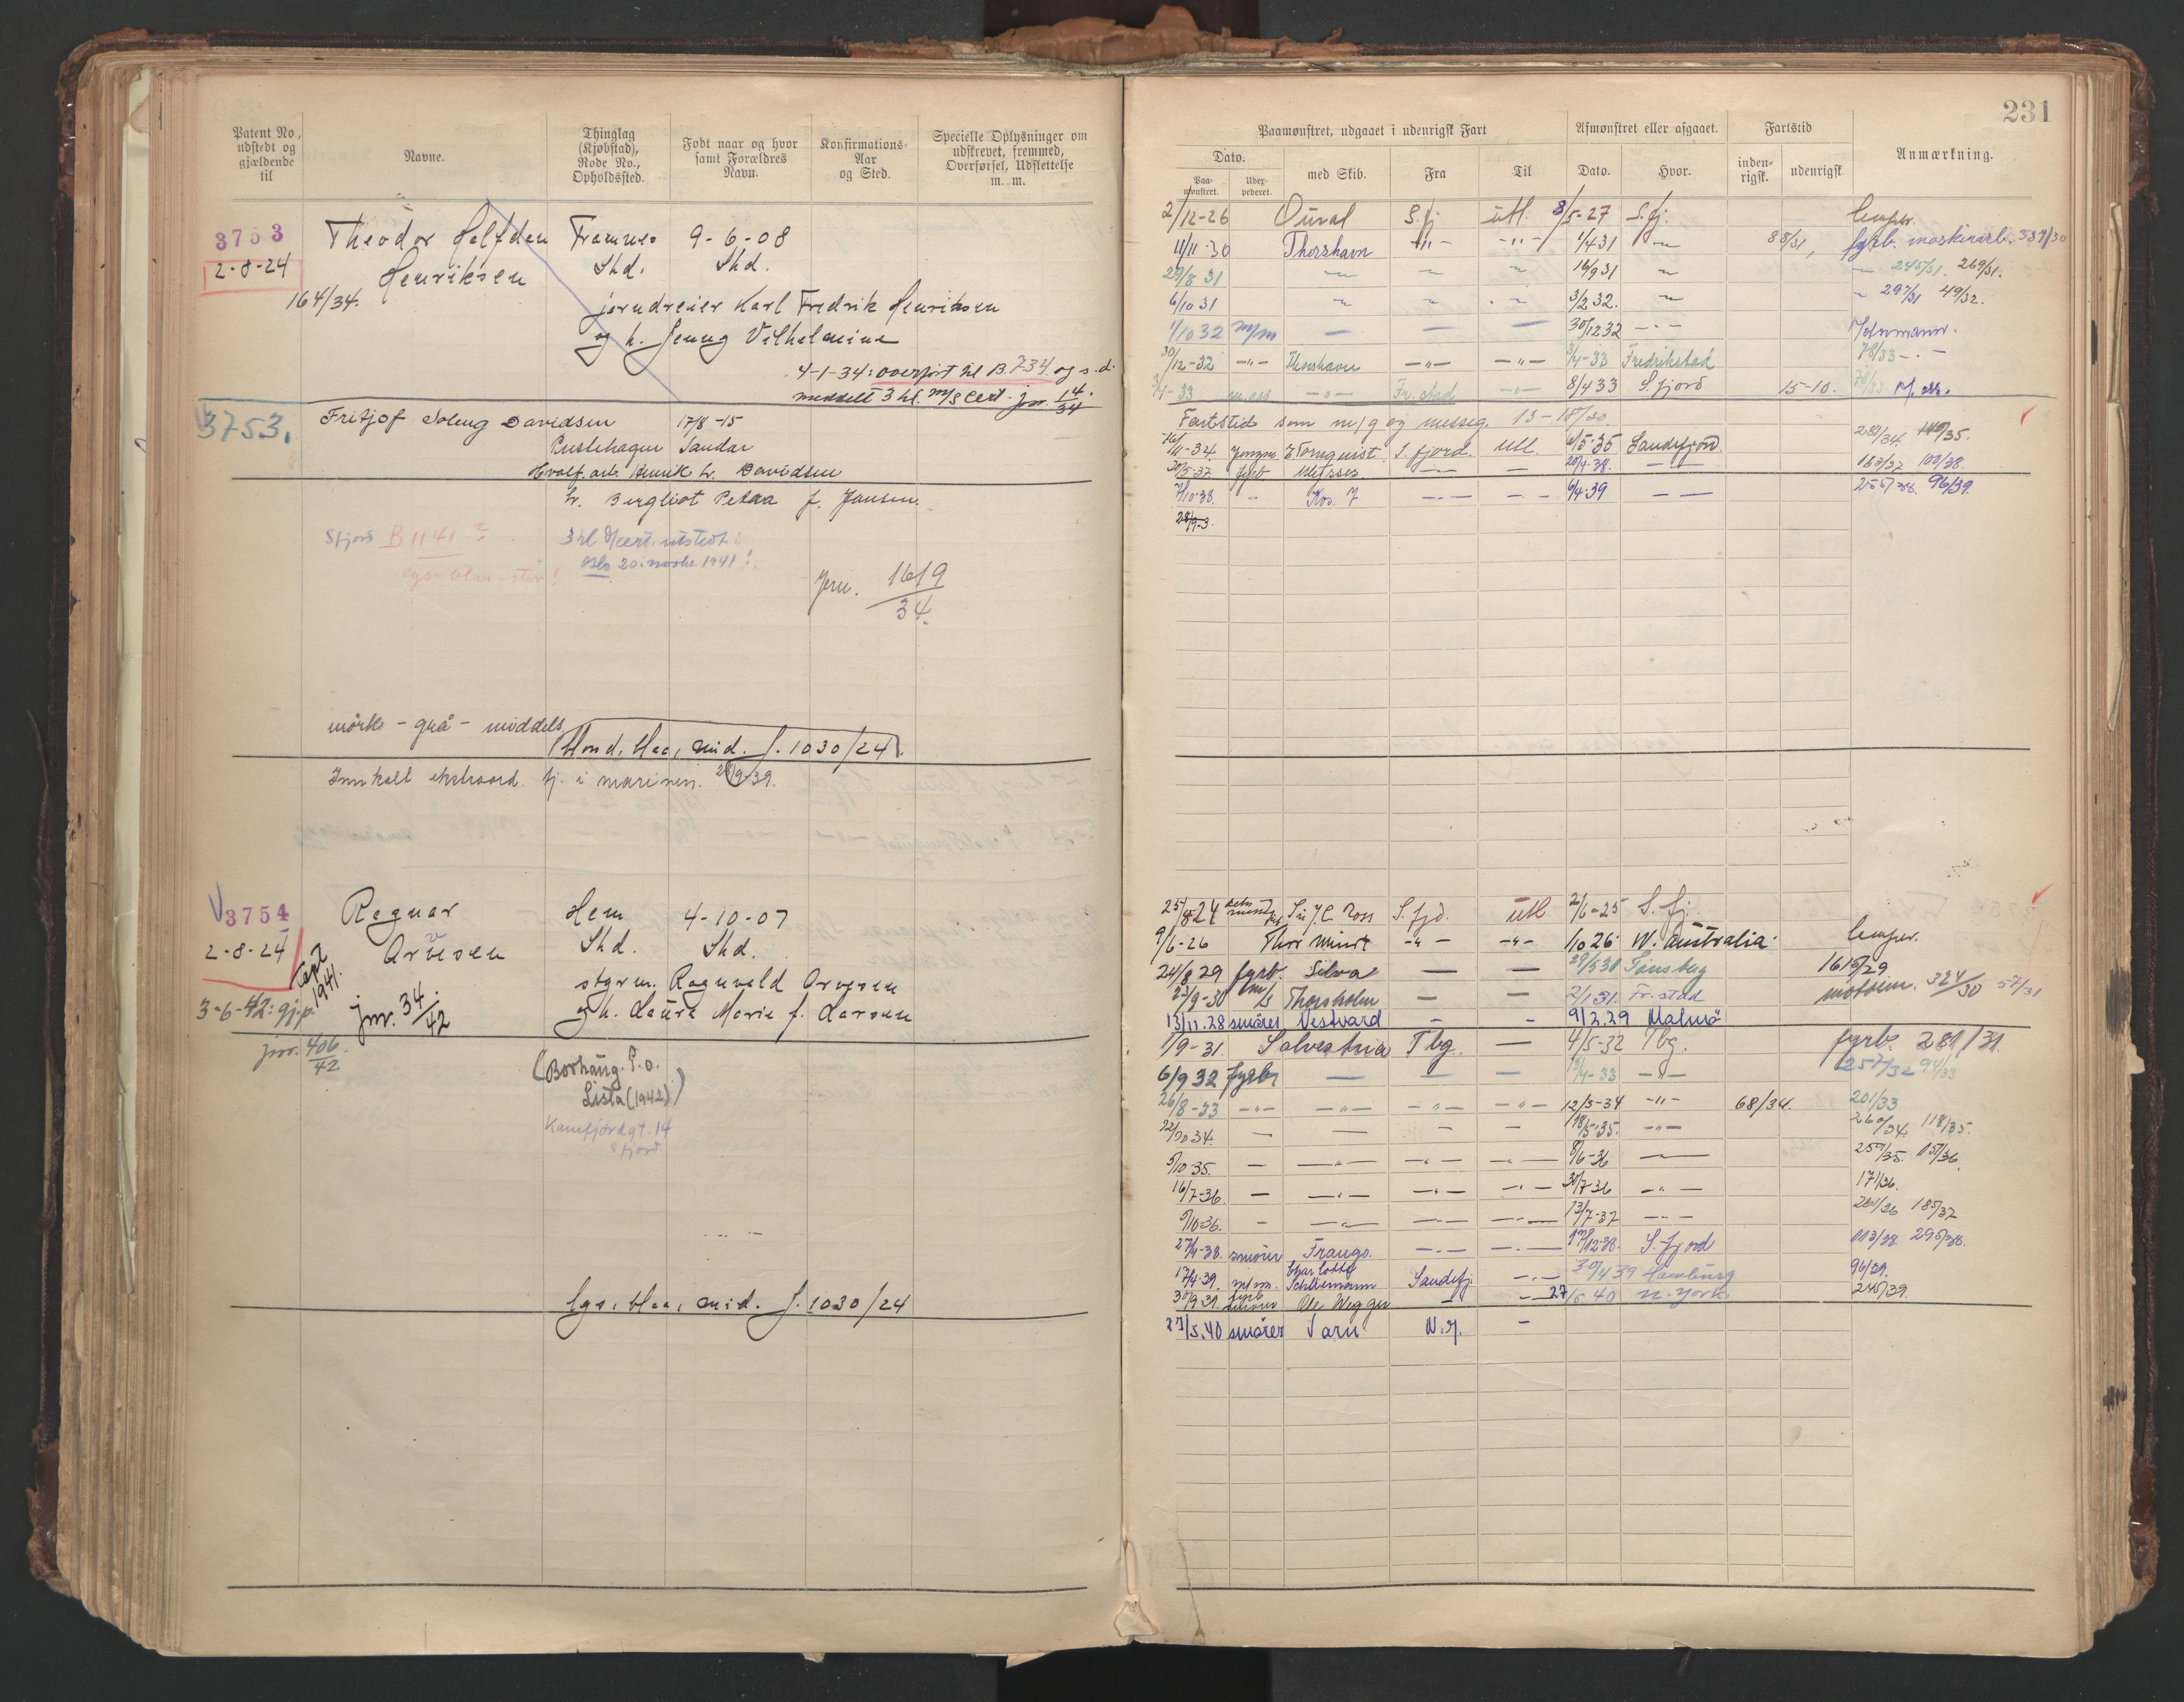 Patent No., udstedt og gjældende til
Navne.
Thinglag (Kjøbstad), Rode No., Opholdssted.
Født naar og hvor samt Forældres Navn.
Konfirmations-Aar og Sted.
Specielle Oplysninger om udskrevet, fremmed, Overførsel, Udslettelse m. m.
3753
2-8-24
164/34.
Theodor Halfdan
Henriksen
Framnes
Shd.
9-6-08
Shd.
jerndreier Karl Fredrik Henriksen
og h. Jenny Vilhelmine
4-1-34: overført til B. 734. og s. d.
meddelt 3 kl. m/s cert. jnr. 14/34
3753.
Fritjof Soleng Davidsen
17/8-15
Prestehagen Sandar
Hvalf.arb. Henrik L. Davidsen
h. Bergliot Petra f. Jansen.
Sfjord B 1141
lys- blaa- stor!
3 kl M cert. utstedt i
Oslo 20. 1941!
Jnr. 1619/34.
mörk - grå - middels
blond, blaa, mid. J. 1030/24.
Innkalt ekstraord. tj. i marinen. 28/9-39.
V3754
2-8-24
Kapt 1941.
3-6-42: gj.p.
jnr. 406/42
Ragnar
Arvesen
jnr. 34/42
Hem
Shd.
4-10-07
Shd.
styrm. Ragnvald Arvesen
og h. Laura Marie f. Larsen
(Borhaug P.o.
Lista (1942))
Kamfjordgt. 14
Sfjord
lys, blaa, mid. J. 1030/24
231
Paamønstret, udgaaet i udenrigsk Fart
Afmønstret eller afgaaet.
Fartstid
Anmærkning.
Dato.
Paa-mønstret.
Udex-pederet.
med Skib.
Fra
Til
Dato.
Hvor.
inden-rigsk.
udenrigsk
2/12-26 Ørval S.fj. utl. 8/5-27 S.fj. lemper.
11/11-30 Thorshavn -"- -"- 1/4 31 88/31, fyrb. maskinarb. 337/30
29/8 31 16/9 31 245/31. 269/31.
6/10 31 3/2 32. 297/31 49/32.
1/10 32 m/m — — — 30/12 32 -"- Mormann.
30/12-32 -"- Thorshavn -"- -"- 3/4-33 Fredrikstad 78/33 -"-
3/4-33 m. ass -"- Fr.stad -"- 8/4 33 S.fjord 15-10. 78/33 M. ass.
Fartstid som m/g og messeg. 13-18/30.
16/11-34 Jungm. E. Tornquist S.fjord. Utl. 6/5-35 Sandefjord 282/34. 110/35.
30/5-37 fyrb Ulysses — — 20/4-38. — 163/37 100/38.
7/10-38. - Kos. 7 -"- -"- 6/4-39 — 255/38. 96/39.
28/9-3.
25/8 24 Sir J. C. Ross S.fjd. utl 2/6-25 S.fj.
9/6-26 Thor Minor -"- -"- 1/10 26 W. Australia. lemper.
24/8 29 fyrb. Silva — — 29/5 30 Tønsberg 1615/29
23/9-30 m/s Thorsholm — — 2/1 31. Fr.stad motorm. 324/30 57/31
13/11.28 smörer Vestvard - - 9/2.29 Malmö
1/9-31. Solvestria Tbg. — 4/5-32 Tbg. fyrb. 281/31
6/9 32 fyrb — — — 13/4-33 -"- 257/32 94/33
26/8-33 -"- -"- -"- -"- 12/5-34 -"- 68/34. 201/33
22/10 34. — — — — 18/5-35. -"- 260/34. 118/35.
5/10 35. - -"- -"- -"- 8/6-36 — 257/35. 151/36.
16/7-36. - -"- -"- -"- 30/7-36 -"- 171/36.
5/10-36. - -"- -"- -"- 13/7-37 -"- 261/36 185/37
27/4-38. smörer Frango. -"- -"- 17/12-38. S.fjord 113/38. 295/38.
17/4-39. m/m. Charlotte Schliemann Sandefj. -"- 30/4 39 Hamburg 96/39.
30/9-39. fyrb smører Ole Wegger - - 27/5 40 N. York 245/39.
27/5.40 smörer Tarn N.Y. -